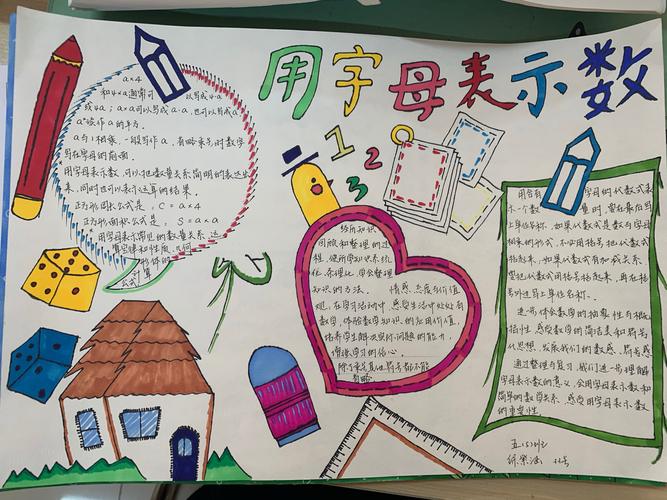 用字母表示数
1
2
3
a×4
和4×a通常可以写成4·a
或4a；a×a可以写成a·a，也可以写成a²
a²读作a的平方。
a与1相乘，一般写作a，省略乘号时数字
写在字母的前面。
用字母表示数，可以把数量关系简明的表达出
来，同时也可以表示运算的结果。
正方形周长公式是：C=a×4
正方形面积公式是：S=a×a
用字母表示常见的数量关系、运
算定律和性质、几何
形体的
计算
公式
经历知识
回顾和整理的过
程，使所学知识系统
化、条理化，学会整理
知识的方法。 情感、态度与价值
观，在学习活动中，感受生活中处处有
数学，体验数学知识的应用价值，
培养学生解决实际问题的能力，
增强学习的信心。
除了乘号其他符号都不能
省略
用含有 字母的代数式表
示一个数 量时，要在最后写
上单位名称，如果代数式是数与字母
相乘的形式，不必用括号把代数式
括起来，如果代数式有加或减关系，
要把代数式用括号括起来，再在括
号外边写上单位名称。
进一步体会数学的抽象性与概
括性，感受数学的简洁美和符号
化思想，发展我们的数感、符号感
通过整理与复习，我们进一步理解
字母表示数的意义，会用字母表示数和
简单的数量关系，感受用字母表示数
的重要性